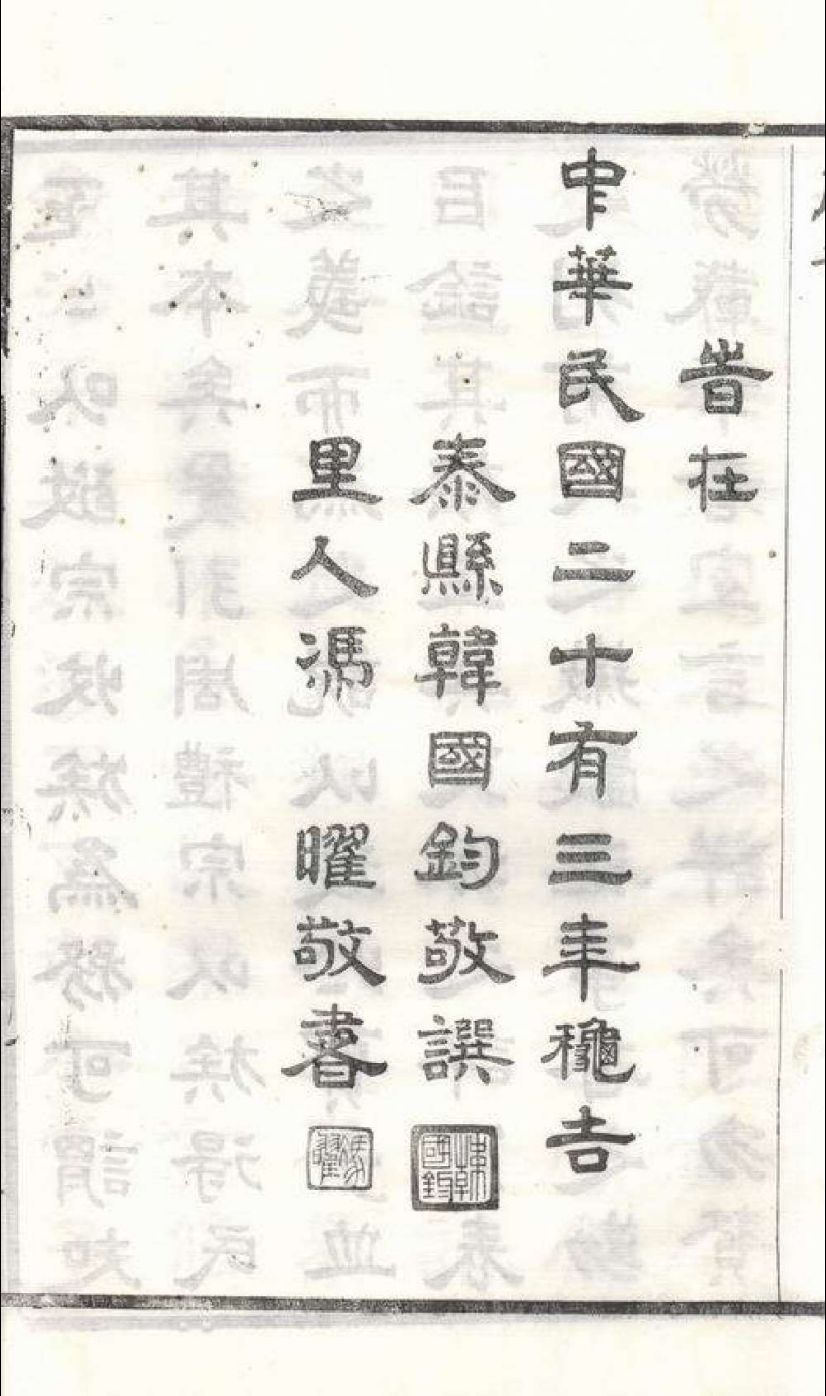 旹在
中華民國二十有三年龝吉
泰縣韓國鈞敬譔
韓國鈞
里人馮 曜敬書
馮曜